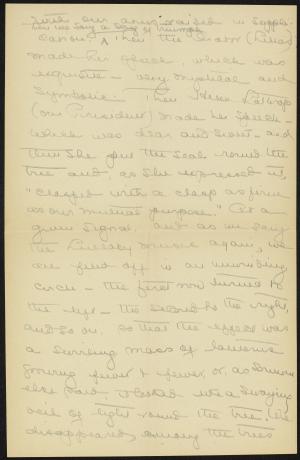 with our arms raised in suppli-
cation. then we sang a song of triumph
Then the Orator
made her speech, which was
exquisite - very mystical and
symbolic. Then Helen
(our President) made her speech -
which was dear and sweet - and
then she put the seal round the
tree and, as she expressed it,
"clasped with a clasp as firm
as our mutual purpose." At a
given signal, and as we sang
the again, we
all filed off in an unwinding
circle - the first row turned to
the left - the second to the right,
and so on, so that the effect was
a surging mass of lanterns
growing fewer & fewer, or, as someone
else said, it looked like a swaying
veil of light round the tree. We
disappeared among the trees